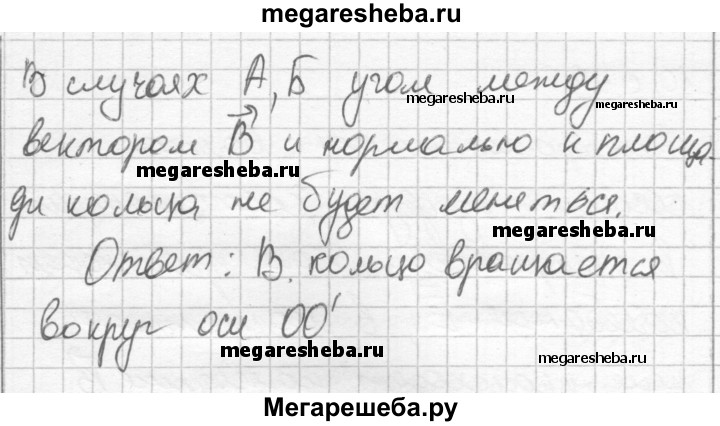 megaresheba.ru
В случаях А, Б угол между
megaresheba.ru
megaresheba.ru
вектором B и нормалью к площа-
megaresheba.ru
ди кольца не будет меняться.
megaresheba.ru
Ответ: В. кольцо вращается
вокруг оси OO'
megaresheba.ru
megaresheba.ru
Мегарешеба.ру